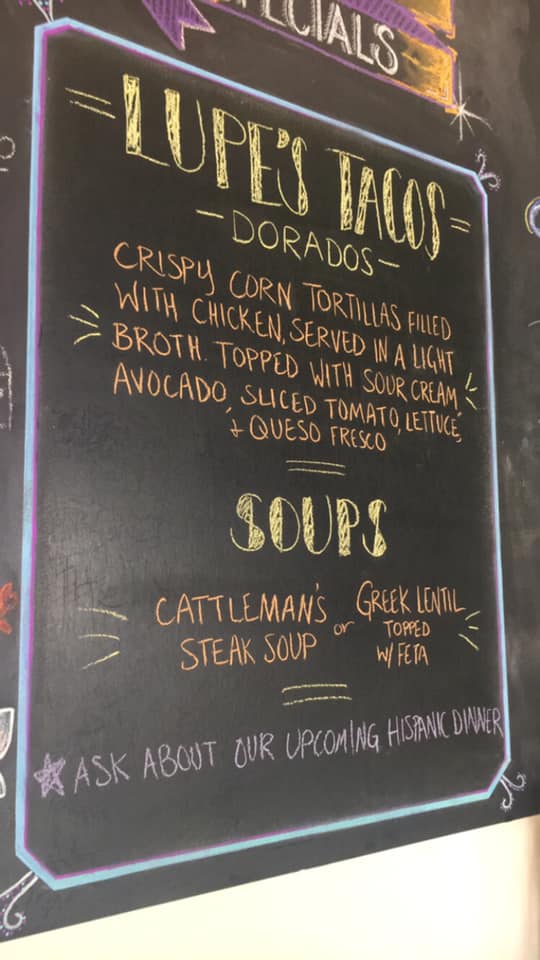 SPECIALS
LUPE'S TACOS
- DORADOS -
CRISPY CORN TORTILLAS FILLED
WITH CHICKEN, SERVED IN A LIGHT
BROTH. TOPPED WITH SOUR CREAM,
AVOCADO, SLICED TOMATO, LETTUCE,
+ QUESO FRESCO
SOUPS
CATTLEMAN'S
STEAK SOUP
or
GREEK LENTIL
TOPPED
W/ FETA
ASK ABOUT OUR UPCOMING HISPANIC DINNER